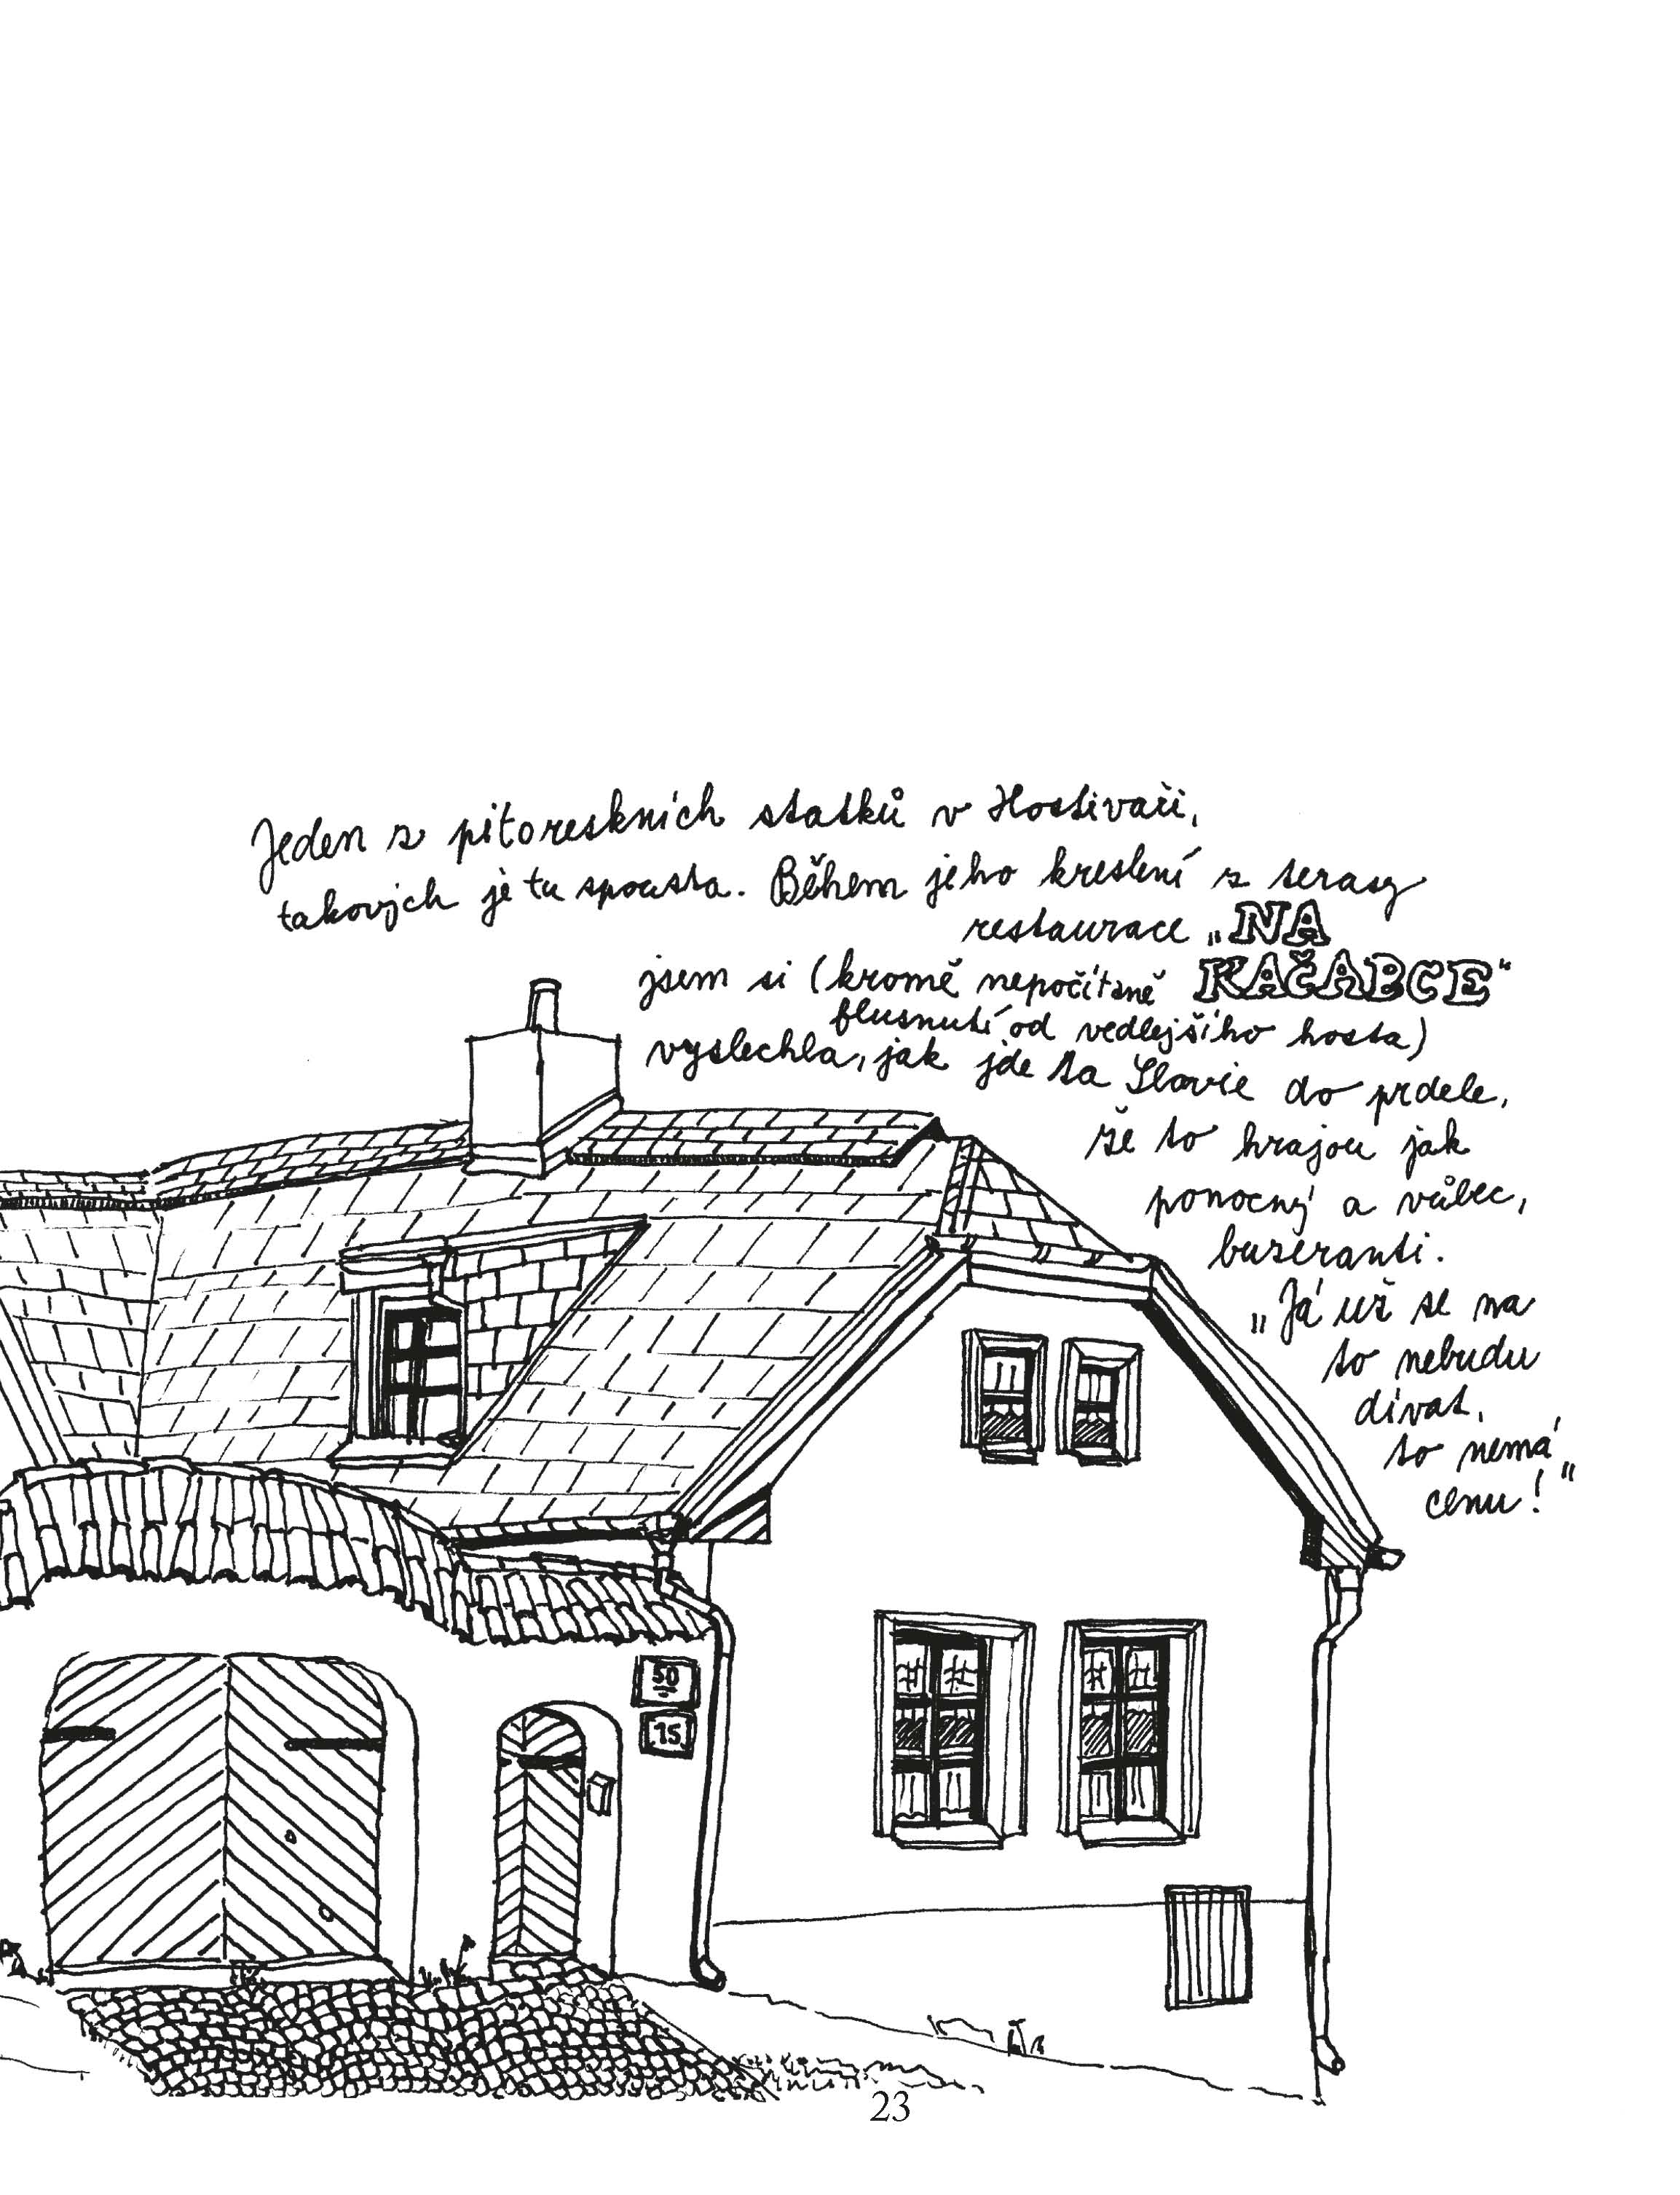 Jeden z pitoreskních statků v Hostivaři,
takových je tu spousta. Během jeho kreslení z terasy
restaurace „NA
KAČABCE“
jsem si (kromě nepočítaně
flusnutí od vedlejšího hosta)
vyslechla, jak jde ta Slavie do prdele,
že to hrajou jak
ponocný a vůbec,
buzeranti.
„Já už se na
to nebudu
dívat,
to nemá
cenu!“
50
15
23